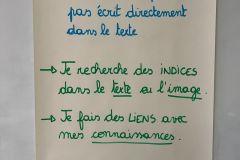 pas écrit directement
dans le texte
→ Je recherche des INDICES
dans le texte ou l'image.
→ Je fais des LIENS avec
mes connaissances.